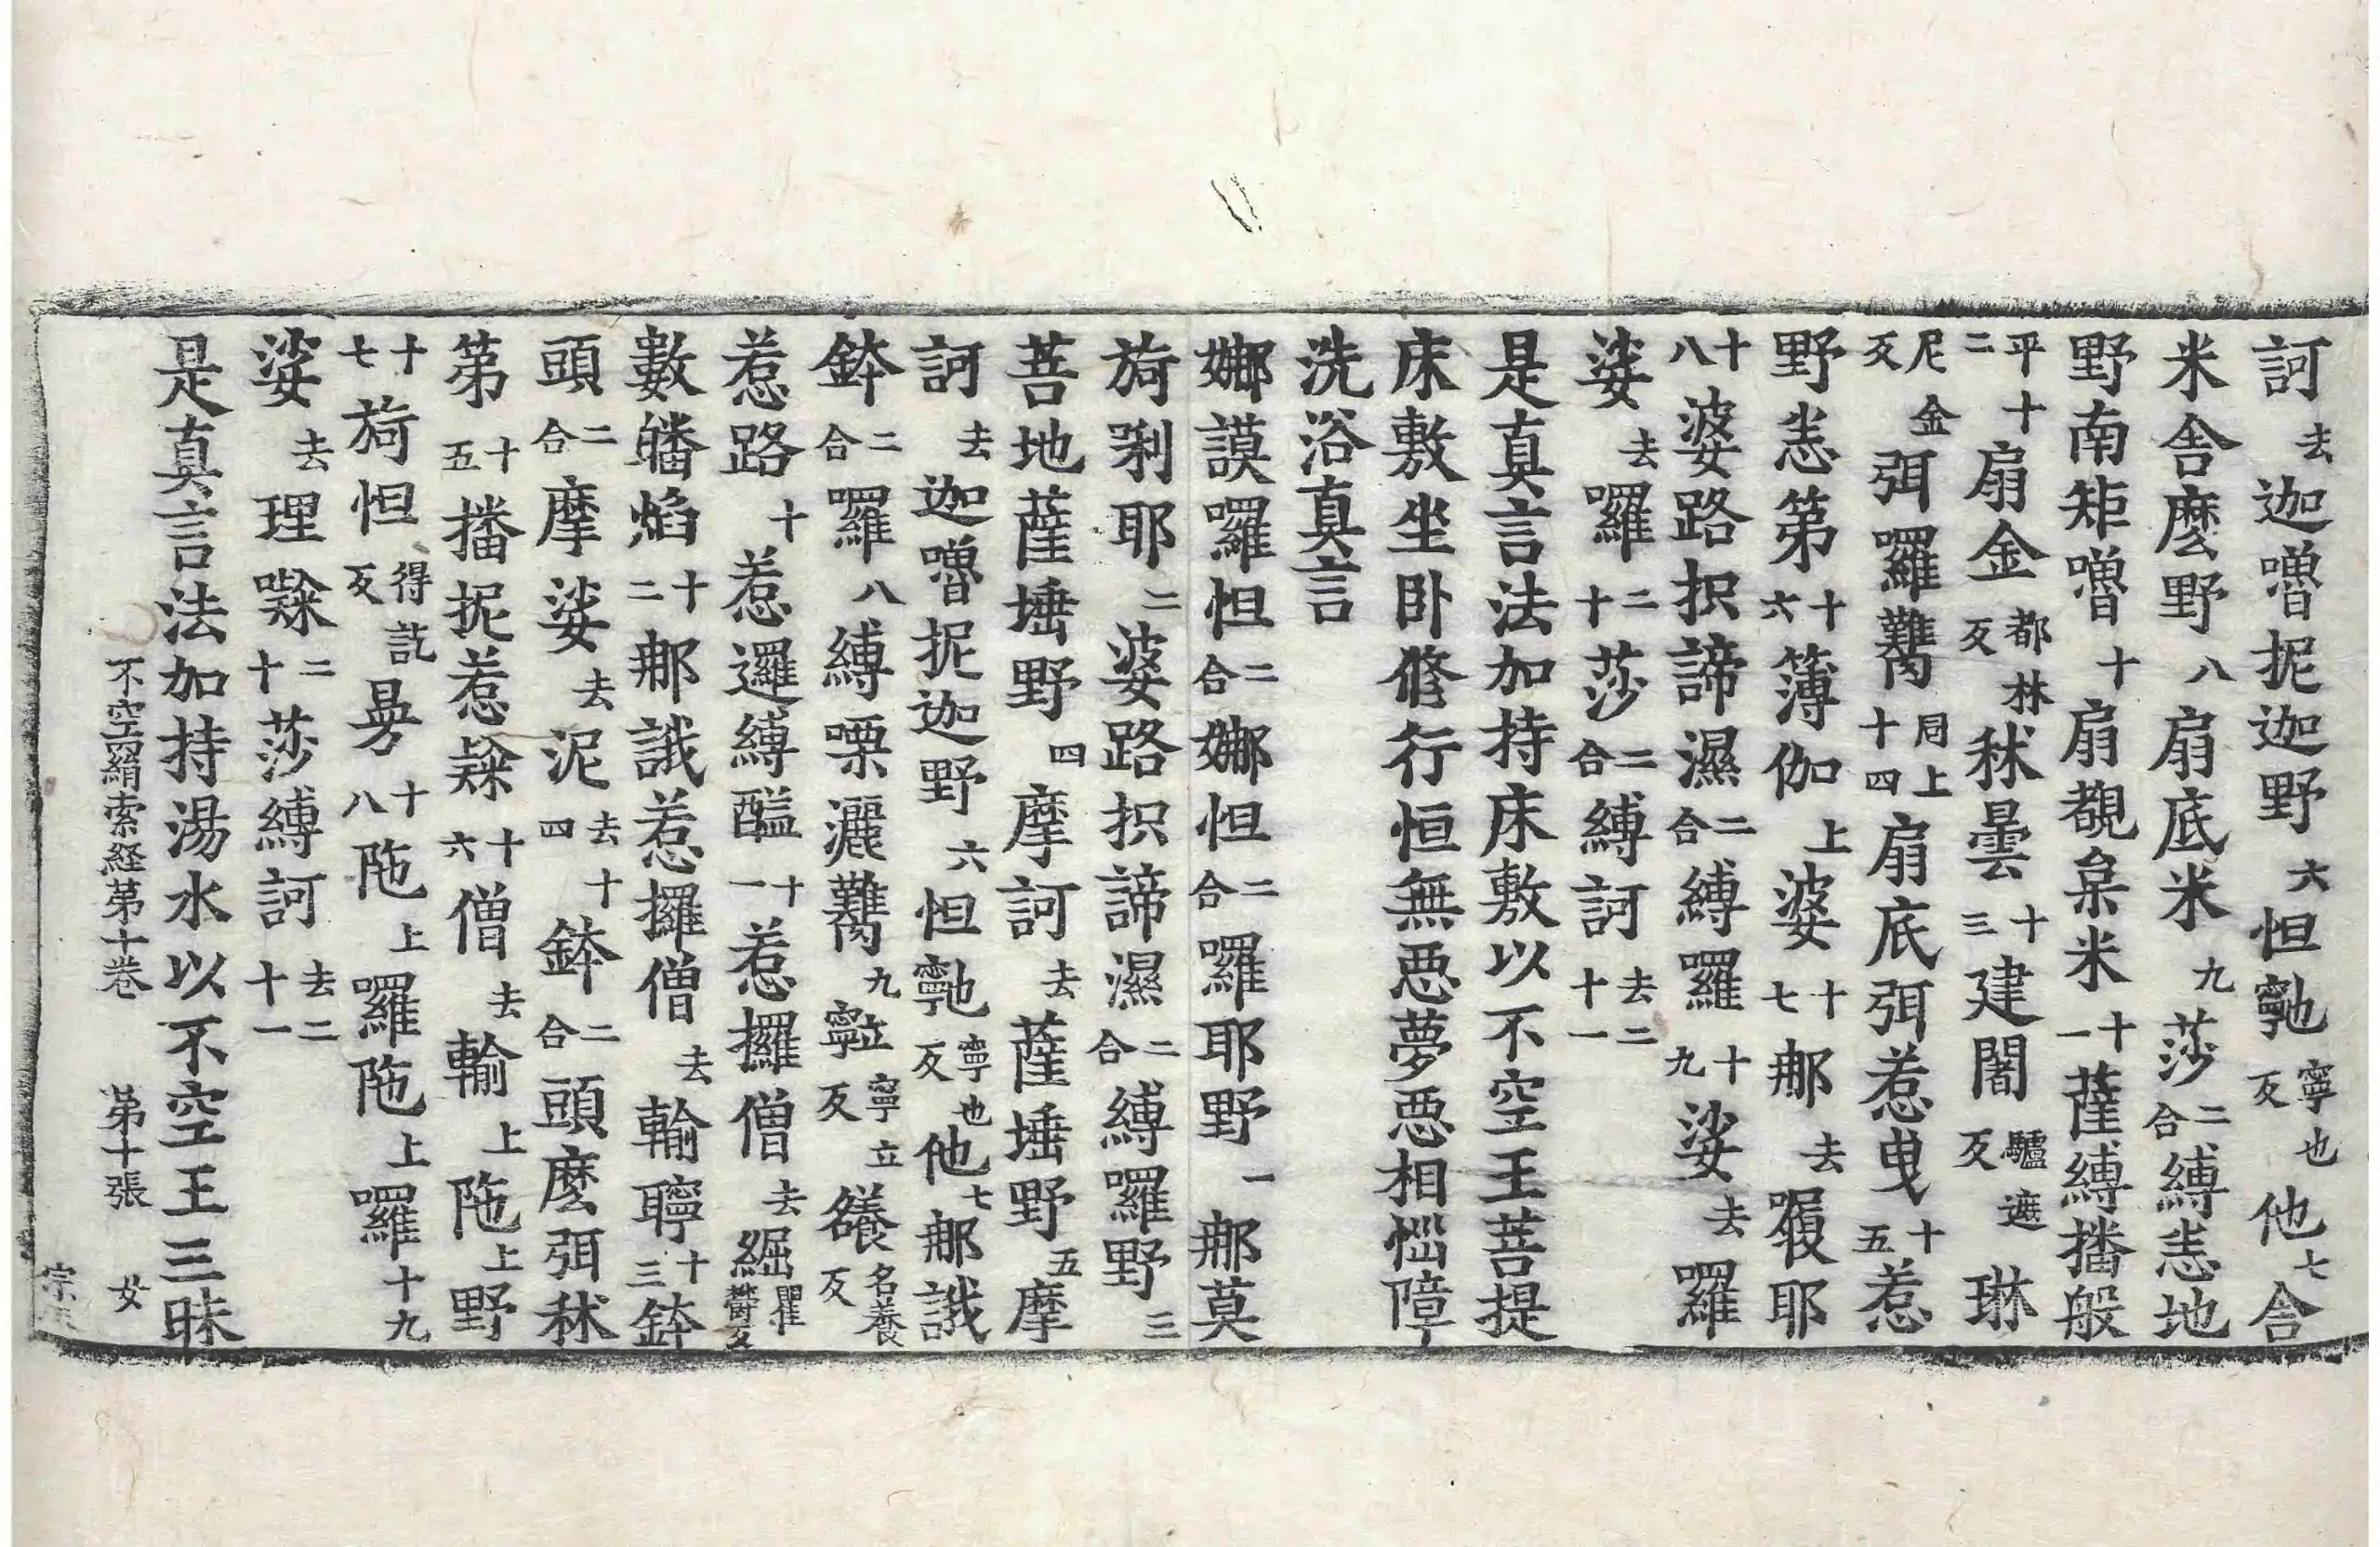 訶去迦嚕抳迦野六怛𩕳寧也反他七舍
米舍麽野八扇底米九莎二合縛恚地
野南矩嚕十扇覩枲米十一薩縛播般
平十二扇金都林反秫曇十三建闇驢遮反琳
尼金反弭囉難同上十四扇底弭惹曳十五惹
野恚第十六簿伽上婆十七那去履耶
十八婆路枳諦濕二合縛羅十九娑去囉
娑去囉二十莎二合縛訶去二十一
是真言法加持床敷以不空王菩提
床敷坐卧修行恒無惡夢惡相惱障
洗浴真言
娜謨囉怛二合娜怛二合囉耶野一那莫
旖唎耶二婆路枳諦濕二合縛囉野三
菩地薩埵野四摩訶去薩埵野五摩
訶去迦嚕抳迦野六怛寧也反他七那誐
鉢二合囉八縛㗚灑難九寧立反名養反
惹路十惹邏縛醯十一惹攞僧去崛瞿欝反
數皤焰十二那誐惹攞僧去輸聹十三鉢
頭二合摩娑去泥去十四鉢二合頭麽弭秫
第十五播抳惹隸十六僧去輸上陁上野
十七旖怛得訖反曩十八陁上囉陁上囉十九
娑去理㘑二十莎縛訶去二十一
是真言法加持湯水以不空王三昧
不空羂索経第十卷 第十張 女
宗